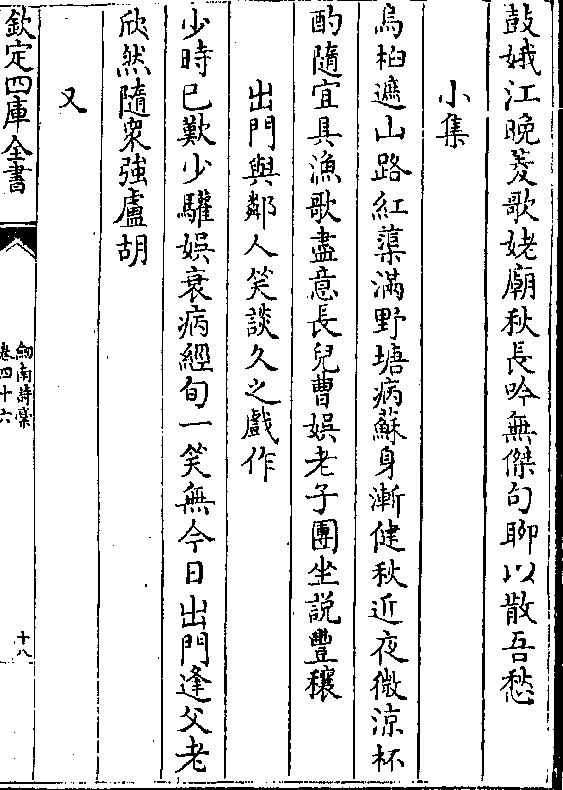 鼓娥江晚菱歌姥廟秋長吟無傑句聊以散吾愁
小集
烏桕遮山路紅蕖滿野塘病蘇身漸健秋近夜微涼杯
酌隨宜具漁歌盡意長兒曹娯老子團坐説豐穰
出門與鄰人笑談久之戲作
少時已歎少驩娯衰病經旬一笑無今日出門逢父老
欣然隨衆強盧胡
又
欽定四庫全書
劒南詩稾
卷四十六
十八